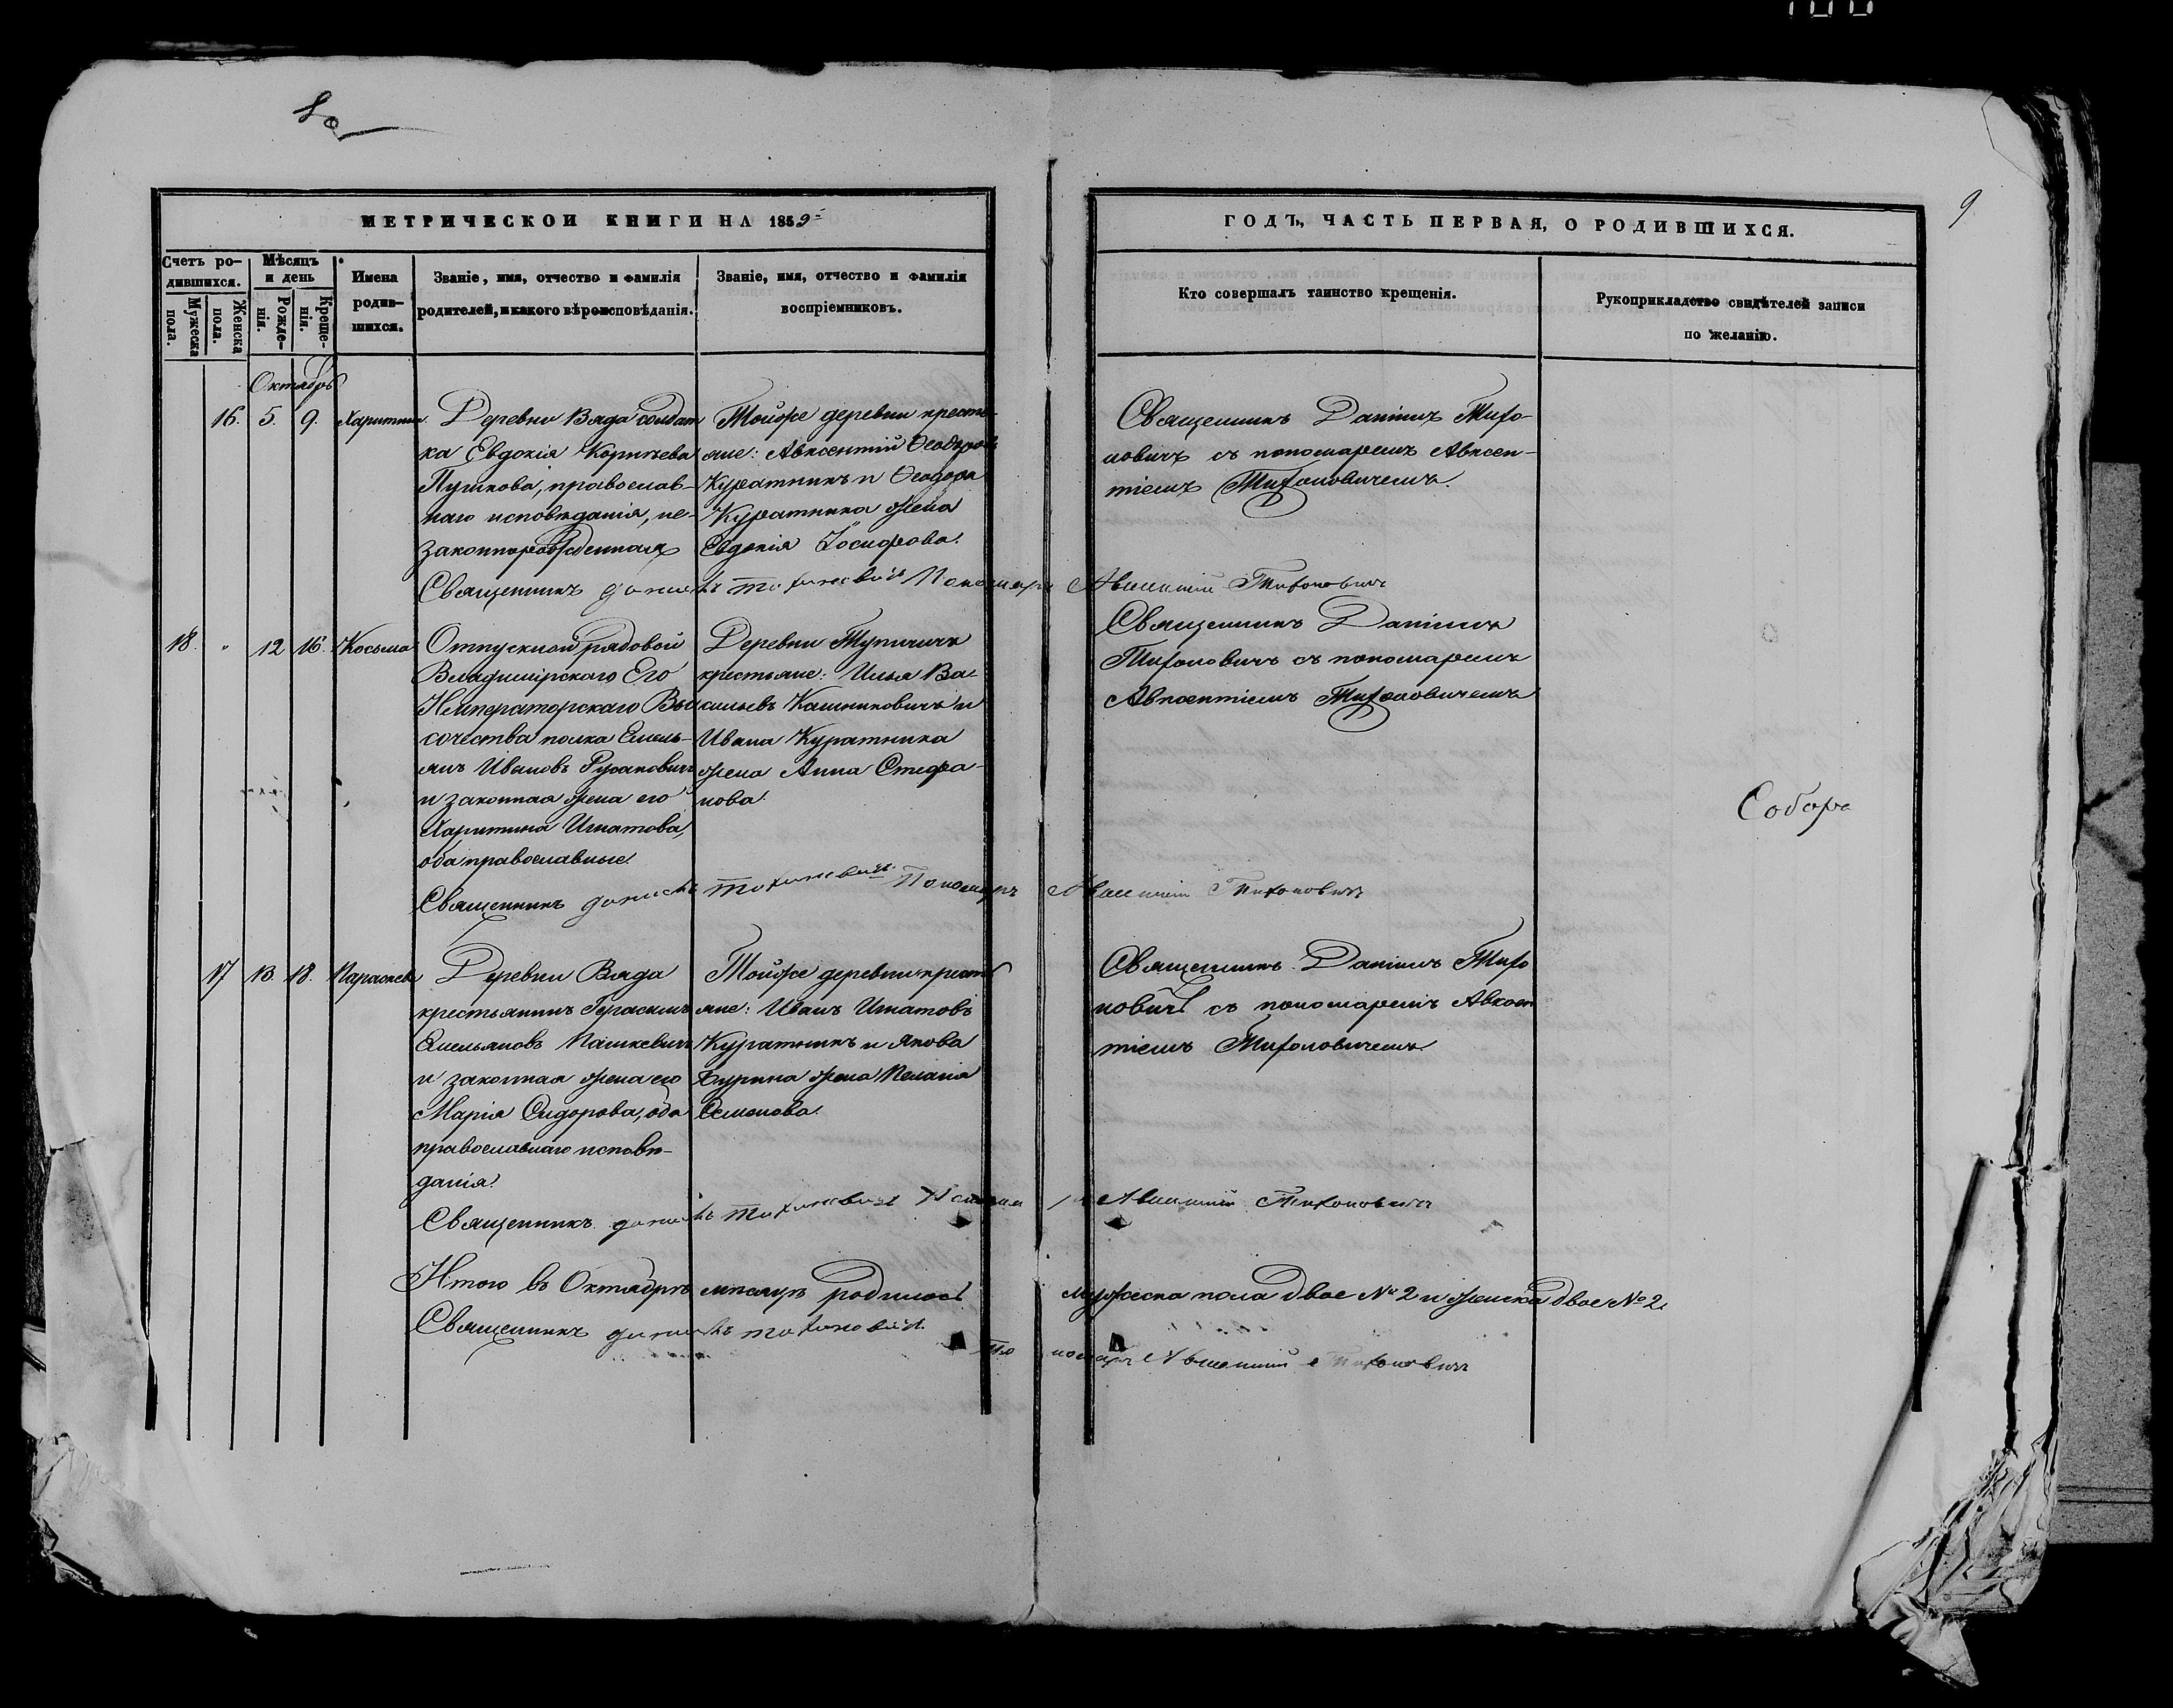 100
9
МЕТРИЧЕСКОЙ КНИГИ НА 1859
ГОДЪ, ЧАСТЬ ПЕРВАЯ, О РОДИВШИХСЯ.
Счетъ ро-
дившихся.
Мужеска
пола.
Женска
пола.
Мѣсяцъ
и день
Рожде-
нія.
Креще-
нія.
Имена
родив-
шихся.
Званіе, имя, отчество и фамилія
родителей, и какого вѣроисповѣданія.
Званіе, имя, отчество и фамилія
воспріемниковъ.
Кто совершалъ таинство крещенія.
Рукоприкладство свидѣтелей записи
по желанію.
Октябрь
16. 5. 9. Харитина
Деревни Вяда солдат
ка Евдокія Корнѣева
православ-
наго исповѣданія, не-
законнорожденная
Тойже деревни кресть-
яне: Авксентій Ѳеодоровъ
Куратникъ и Ѳеодора
Куратника жена
Евдокія Іосифова.
Священникъ Даніилъ Тихо-
новичъ съ пономаремъ Авксен-
тіемъ Тихоновичемъ.
Священникъ Даніилъ Тихоновичъ Пономарь Авксентій Тихоновичъ
18. " 12 16. Косьма
Отпускной рядовой
Владимірскаго Его
Императорскаго Вы
сочества полка Емель-
янъ Ивановъ Русановичъ
и законная жена его
Харитина Игнатова,
оба православные.
Деревни
крестьяне: Илья Ва-
сильевъ Кашниковичъ и
Ивана Куратника
жена Анна Стефа-
нова.
Священникъ Даніилъ
Тихоновичъ съ пономаремъ
Авксентіемъ Тихоновичемъ
Собора
Священникъ Даніилъ Тихоновичъ. Пономарь Авксентій Тихоновичъ
17 13. 18. Параскева
Деревни Вяда
крестьянинъ Герасимъ
Емельяновъ Пашкевичъ
и законная жена его
Марія Сидорова, оба
православнаго исповѣ-
данія.
Тойже деревни кресть
яне: Иванъ Игнатовъ
Куратникъ и Якова
жена Пелагія
Семенова.
Священникъ Даніилъ Тихо
новичъ съ пономаремъ Авксен
тіемъ Тихоновичемъ
Священникъ Даніилъ Тихоновичъ Пономарь Авксентій Тихоновичъ
Итого въ Октябрѣ мѣсяцѣ родилось мужеска пола двое № 2 и женска двое № 2.
Священникъ Даніилъ Тихоновичъ.
Пономарь Авксентій Тихоновичъ